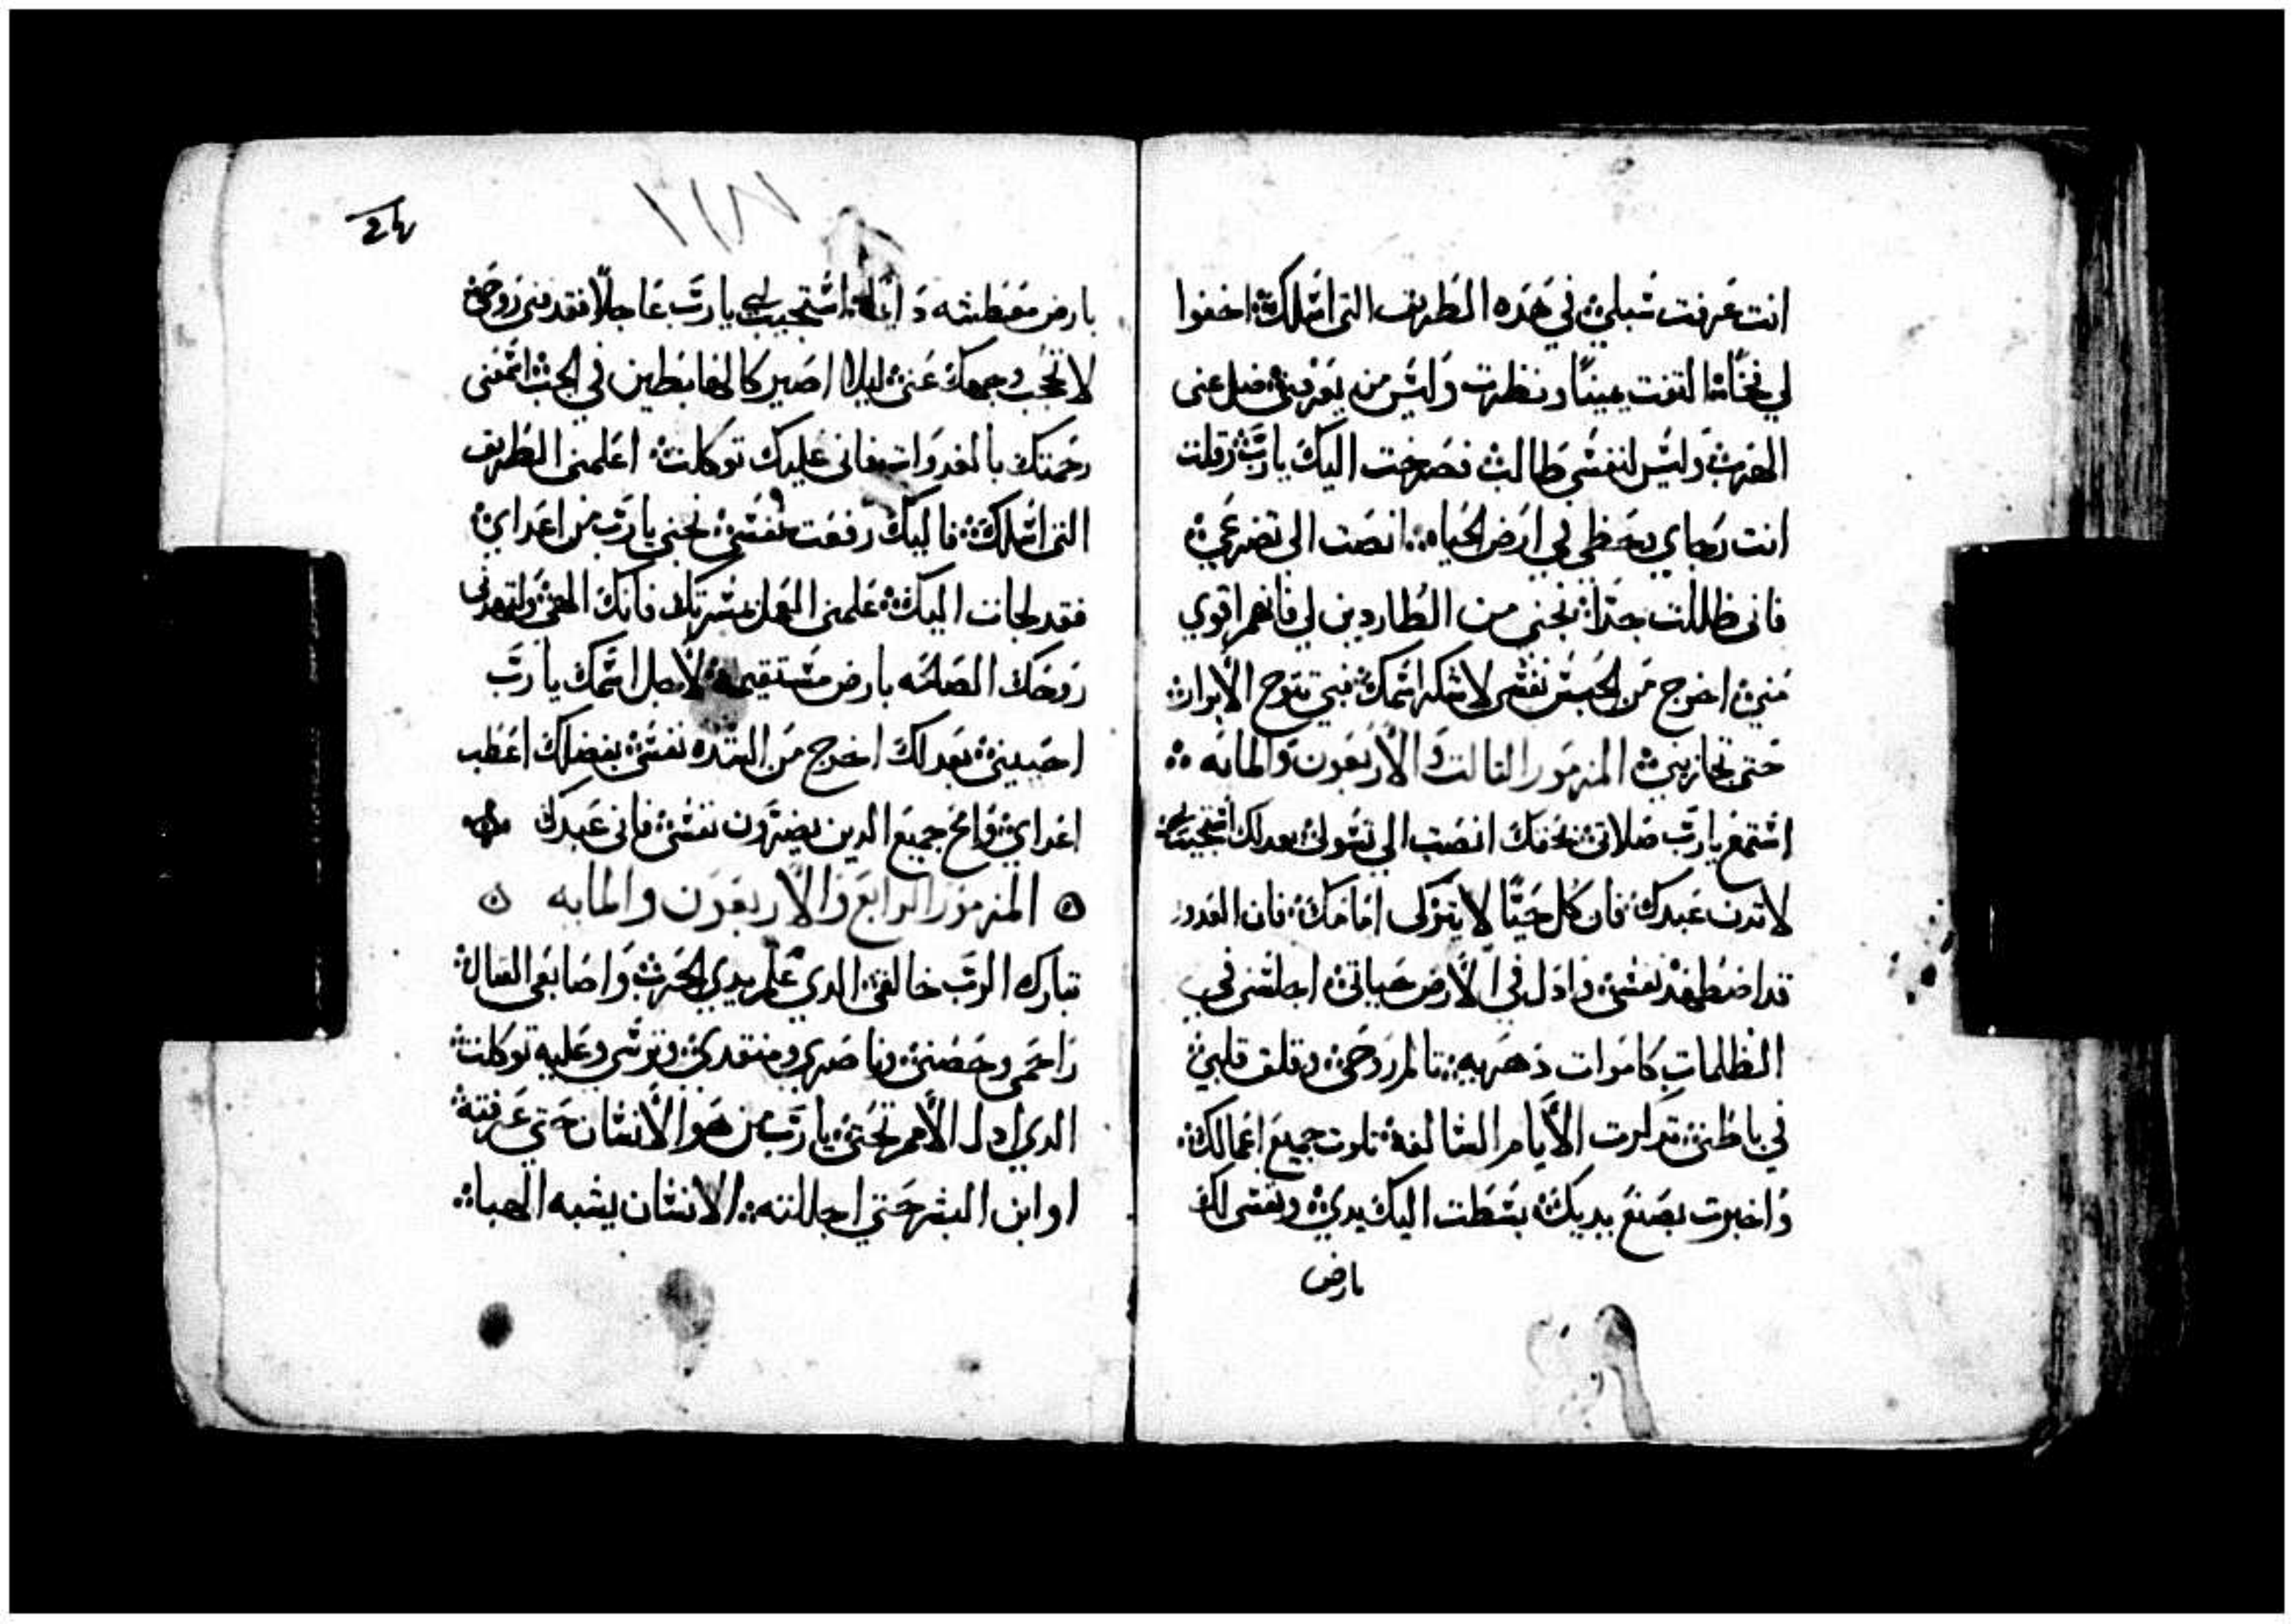 انت عرفت سبلي في هده الطريق التي اسلك اخفوا
لي فخًا التفت يمينًا ونظرت وليس من يعرفني ضل عني
الهرب وليس لنفسي طالب فصرخت اليك يارب وقلت
انت رجاي وحظي في ارض الحياه انصت الي تضرعي
فاني ظللت جدًا نجني من الطاردين لي فانهم اقوي
مني اخرج من الحبس نفسي لاشكر اسمك فبي تتوج الابرار
حتي تجازيني المزمور التالت والاربعون والمايه
استمع يارب صلاتي بحقك انصت الي سولي بعدلك استجيب لي
لاتدن عبدك فان كل حيًا لا يتزكي امامك فان العدو
قد اضطهد نفسي واذل في الارض حياتي اجلسني في
الظلمات كاموات دهريه تالم روحي وقلق قلبي
في باطني تدكرت الايام السالفة تلوت جميع اعمالك
واخبرت بصنع يديك بسطت اليك يدي ونفسي لك
بارض
١٧٨
بارض معطشه استجيب لي يارب عاجلًا فقد فني روحي
لا تحجب وجهك عني ليلا اصير كالهابطين في الجب اسمعني
رحمتك بالغدوات فاني عليك توكلت اعلمني الطريق
التي اسلك فاليك رفعت نفسي نجني يارب من اعداي
فقد لجات اليك علمني العمل بمسرتك فانك الهي ولتهدني
روحك الصالحه بارض مستقيمة لاجل اسمك يا رب
احييني بعدلك اخرج من الشده نفسي بفضلك اعطب
اعداي وامح جميع الدين يضرون نفسي فاني عبدك
المزمور الرابع والاربعون والمايه
تبارك الرب خالقي الدي علم يدي الحرب واصابعي القتال
راحمي وحصني وناصري ومنقدي وترسي وعليه توكلت
الدي ادل الامم تحتي يا رب من هو الانسان حتي عرفته
او ابن البشر حتي اجللته الانسان يشبه الهبا